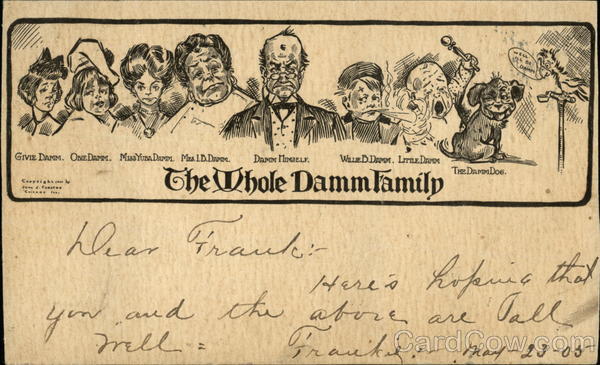 WELL I'LL BE DAMM
GIVIE DAMM. ONE DAMM. MISS YUBA DAMM. MRS. I.B. DAMM. DAMM HIMSELF. WILLIE B. DAMM. LITTLE DAMM
THE DAMM DOG.
The Whole Damm Family
Dear Frank:-
Here's hoping that
you and the above are all
well =
Frankie:- May-23-05
CardCow.com